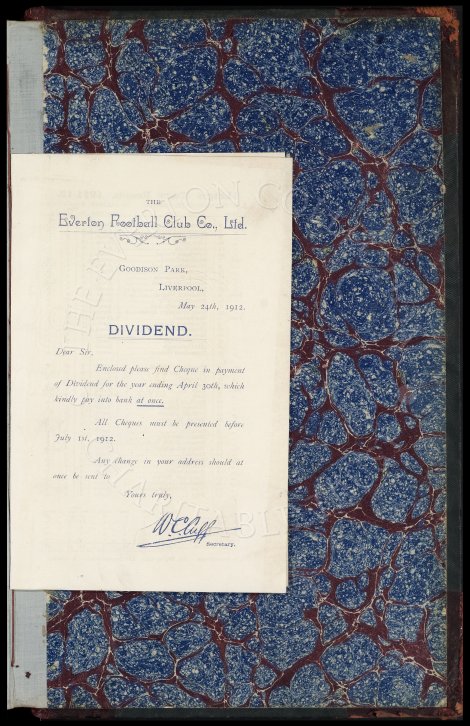 THE
Everton Football Club Co., Ltd.
GOODISON PARK,
LIVERPOOL,
May 24th, 1912.
DIVIDEND.
Dear Sir.
Enclosed please find Cheque in payment
of Dividend for the year ending April 30th, which
kindly pay into bank at once.
All Cheques must be presented before
July 1st, 1912.
Any change in your address should at
once be sent to
Yours truly,
W.C. Cuff
Secretary.
THE EVERTON C
CHARITABL